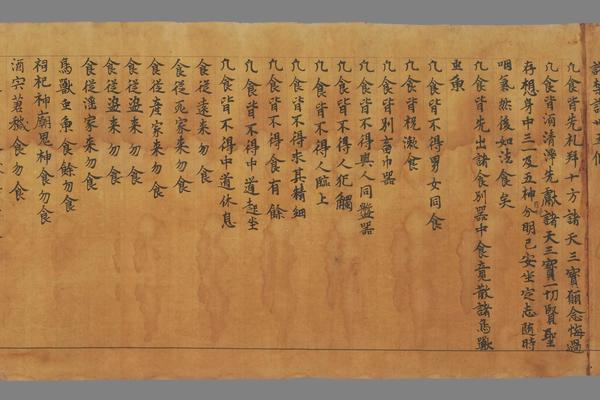 凢食皆先礼拜十方諸天三寶願念悔過
凢食皆須清淨先獻諸天三寶一切賢聖
存想身中三一及五神分明已安坐定志随時
咽氣然後如法食矣
凢食皆先出諸食別器中食竟散諸鳥獸
虫魚
凢食皆不得男女同食
凢食皆祝漱食
凢食皆別畜巾器
凢食皆不得與人同盤器
凢食皆不得人犯觸
凢食皆不得人臨上
凢食皆不得求其精細
凢食皆不得食有餘
凢食皆不得中道起坐
凢食皆不得中道休息
食従遠来勿食
食従死家来勿食
食従産家来勿食
食従盗来勿食
食従盗来勿食
食従淫家来勿食
鳥獸虫魚食餘勿食
祠祀神廟鬼神食勿食
酒宍葷穢食勿食